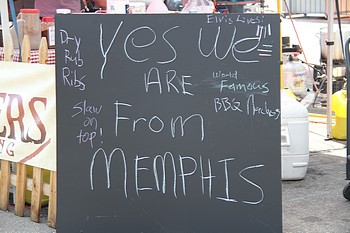 Elvis Lives!
Yes We
Dry
Rub
Ribs
ARE
World
Famous
BBQ
Slaw
on
top!
From
MEMPHIS
ERS